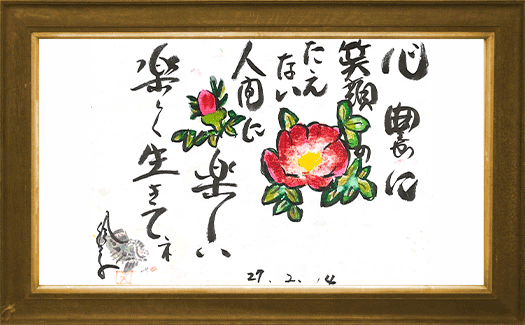 心豊に
笑顔の
たえ
ない
人間に
楽しい
楽しく生きてネ
27.2.14